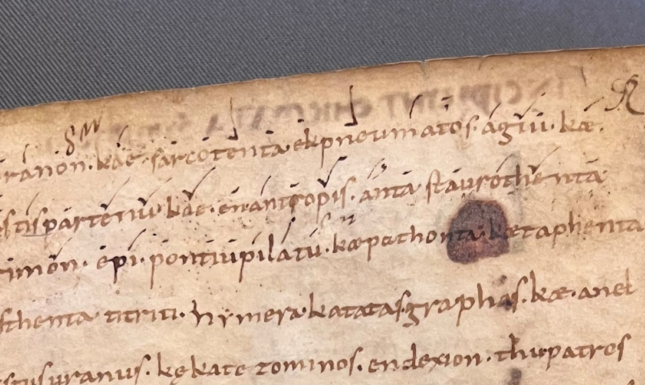 uranon. kae. sarcotenta ekpneumatos. agiu. kae.
estis partenu kae. enantropis. anta staurothenta
imon. epi. pontiupilatu. kæpathonta. kætaphenta
sthenta titriti hymera. katatasgraphas. kæ. anel
stusuranus. kękate zominos. endexion. thupatros